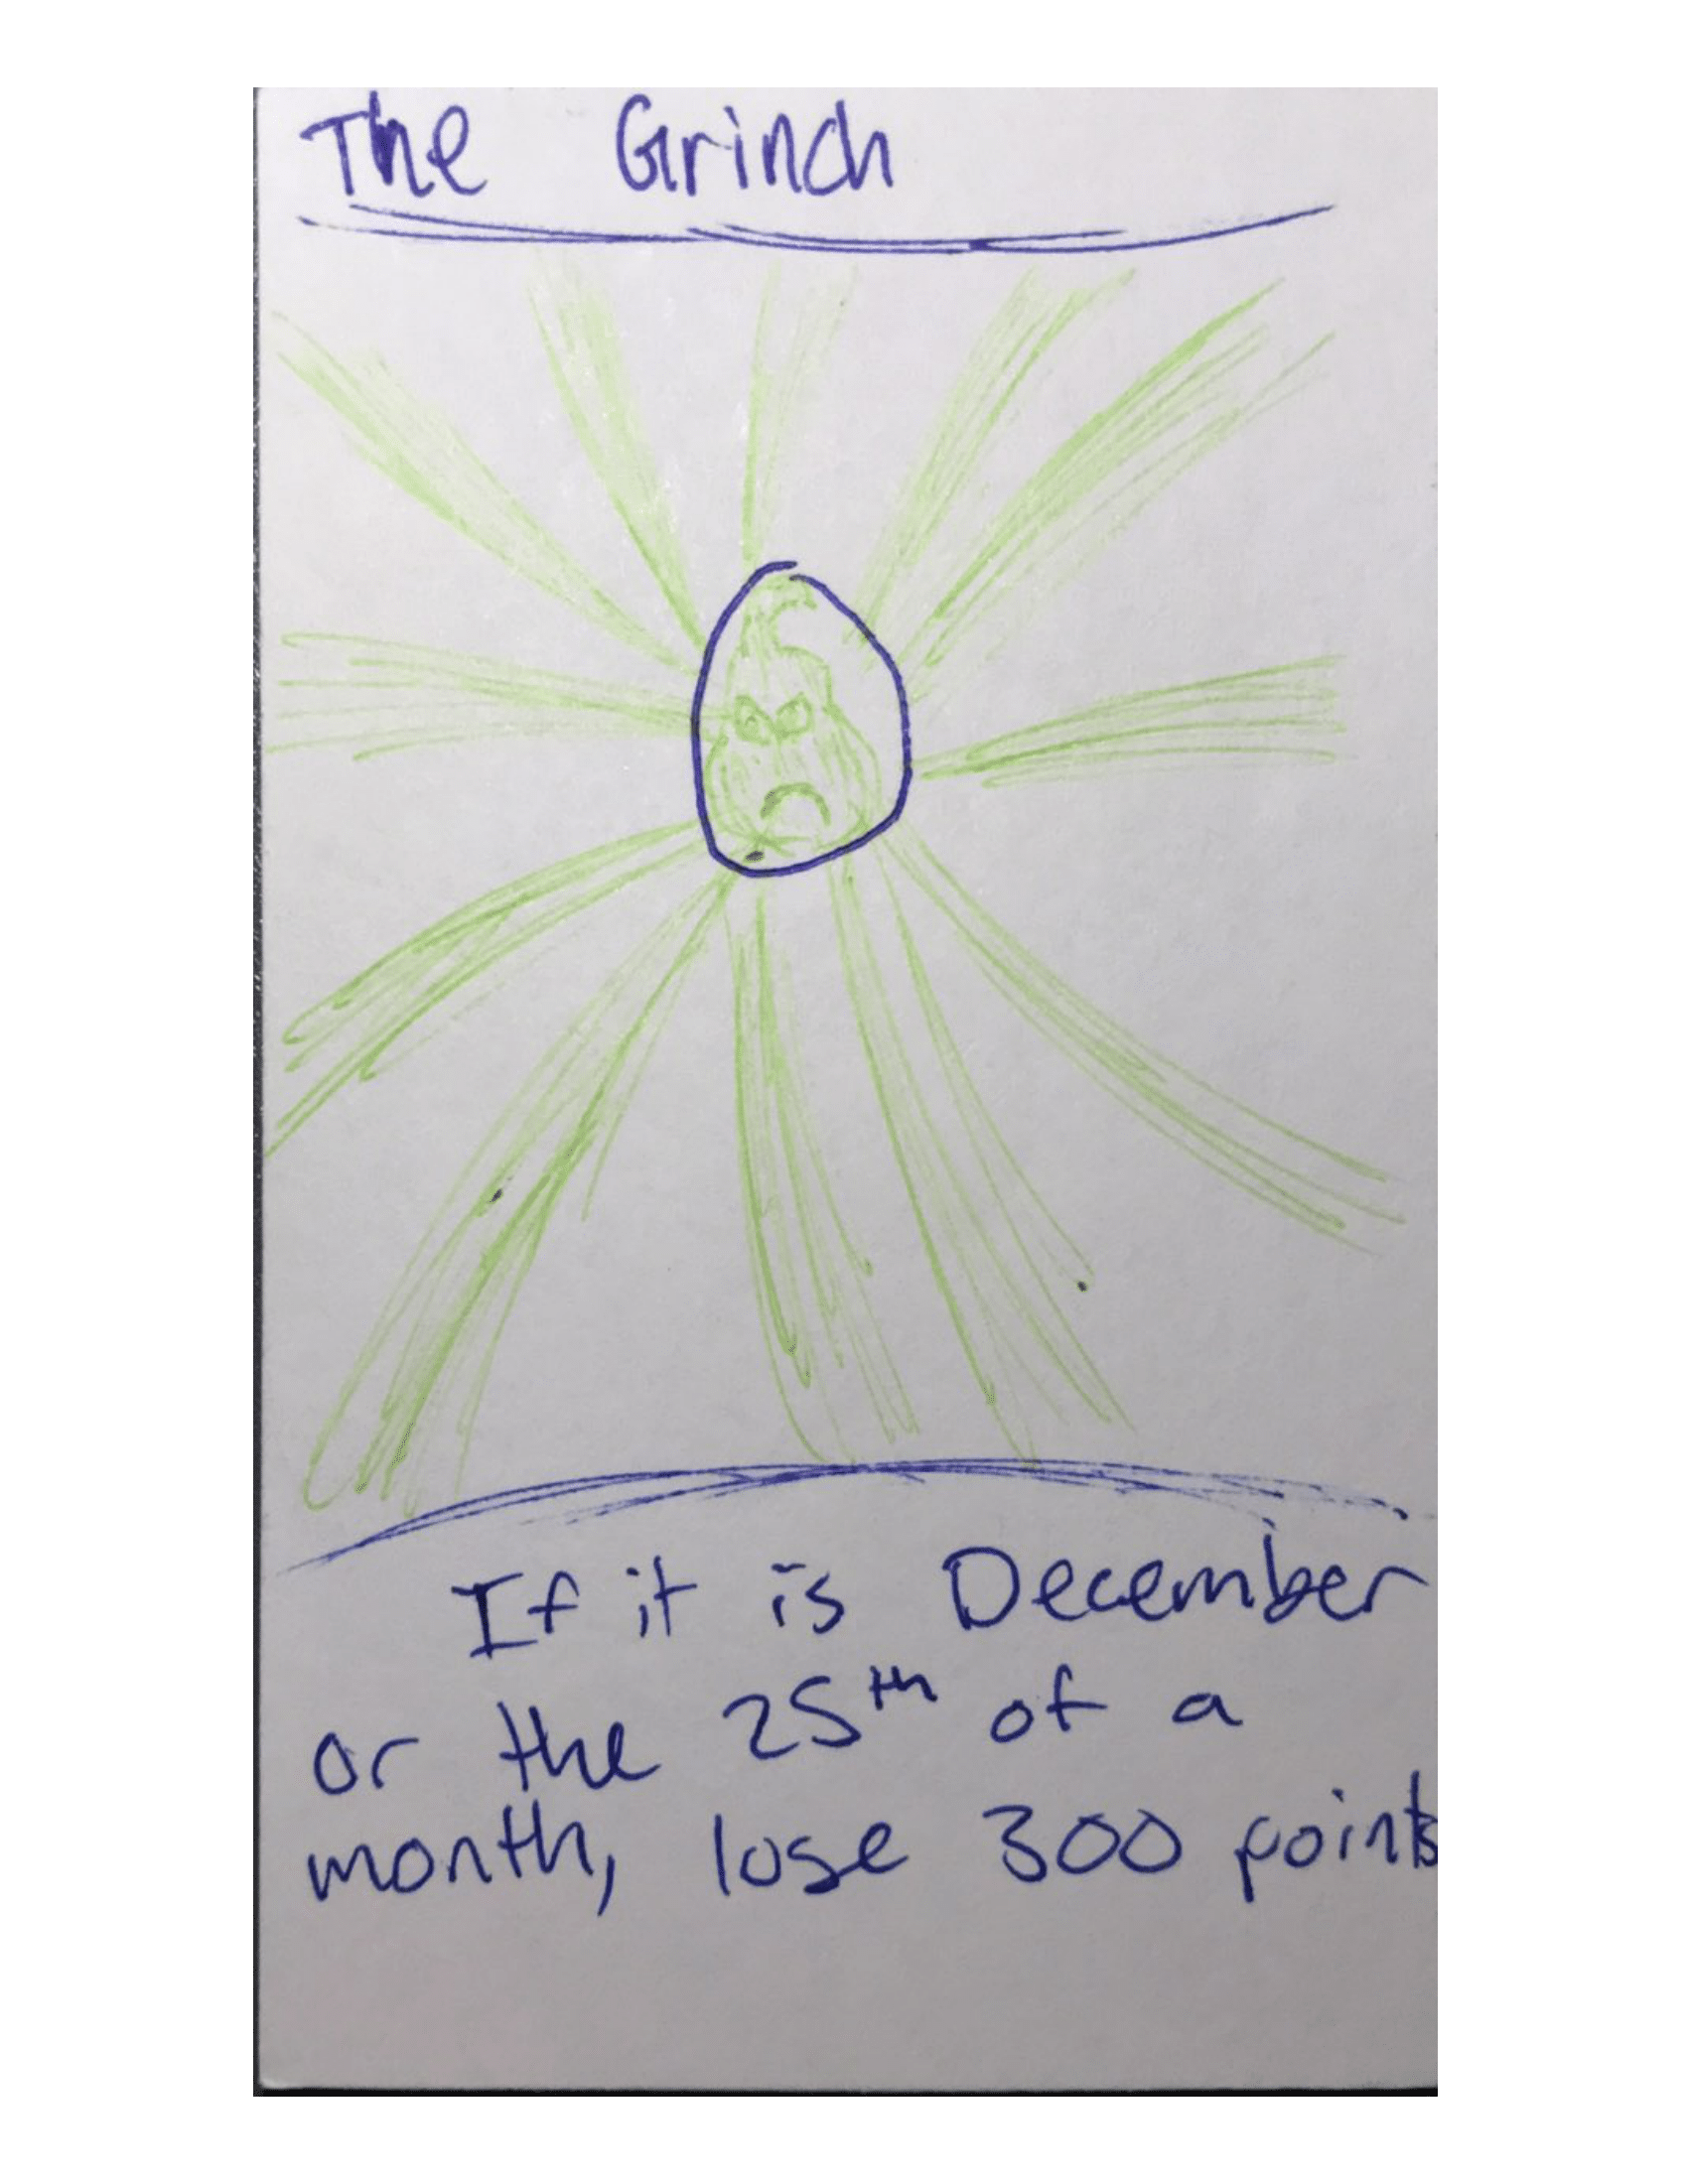 The Grinch
If it is December
or the 25th of a
month, lose 300 points